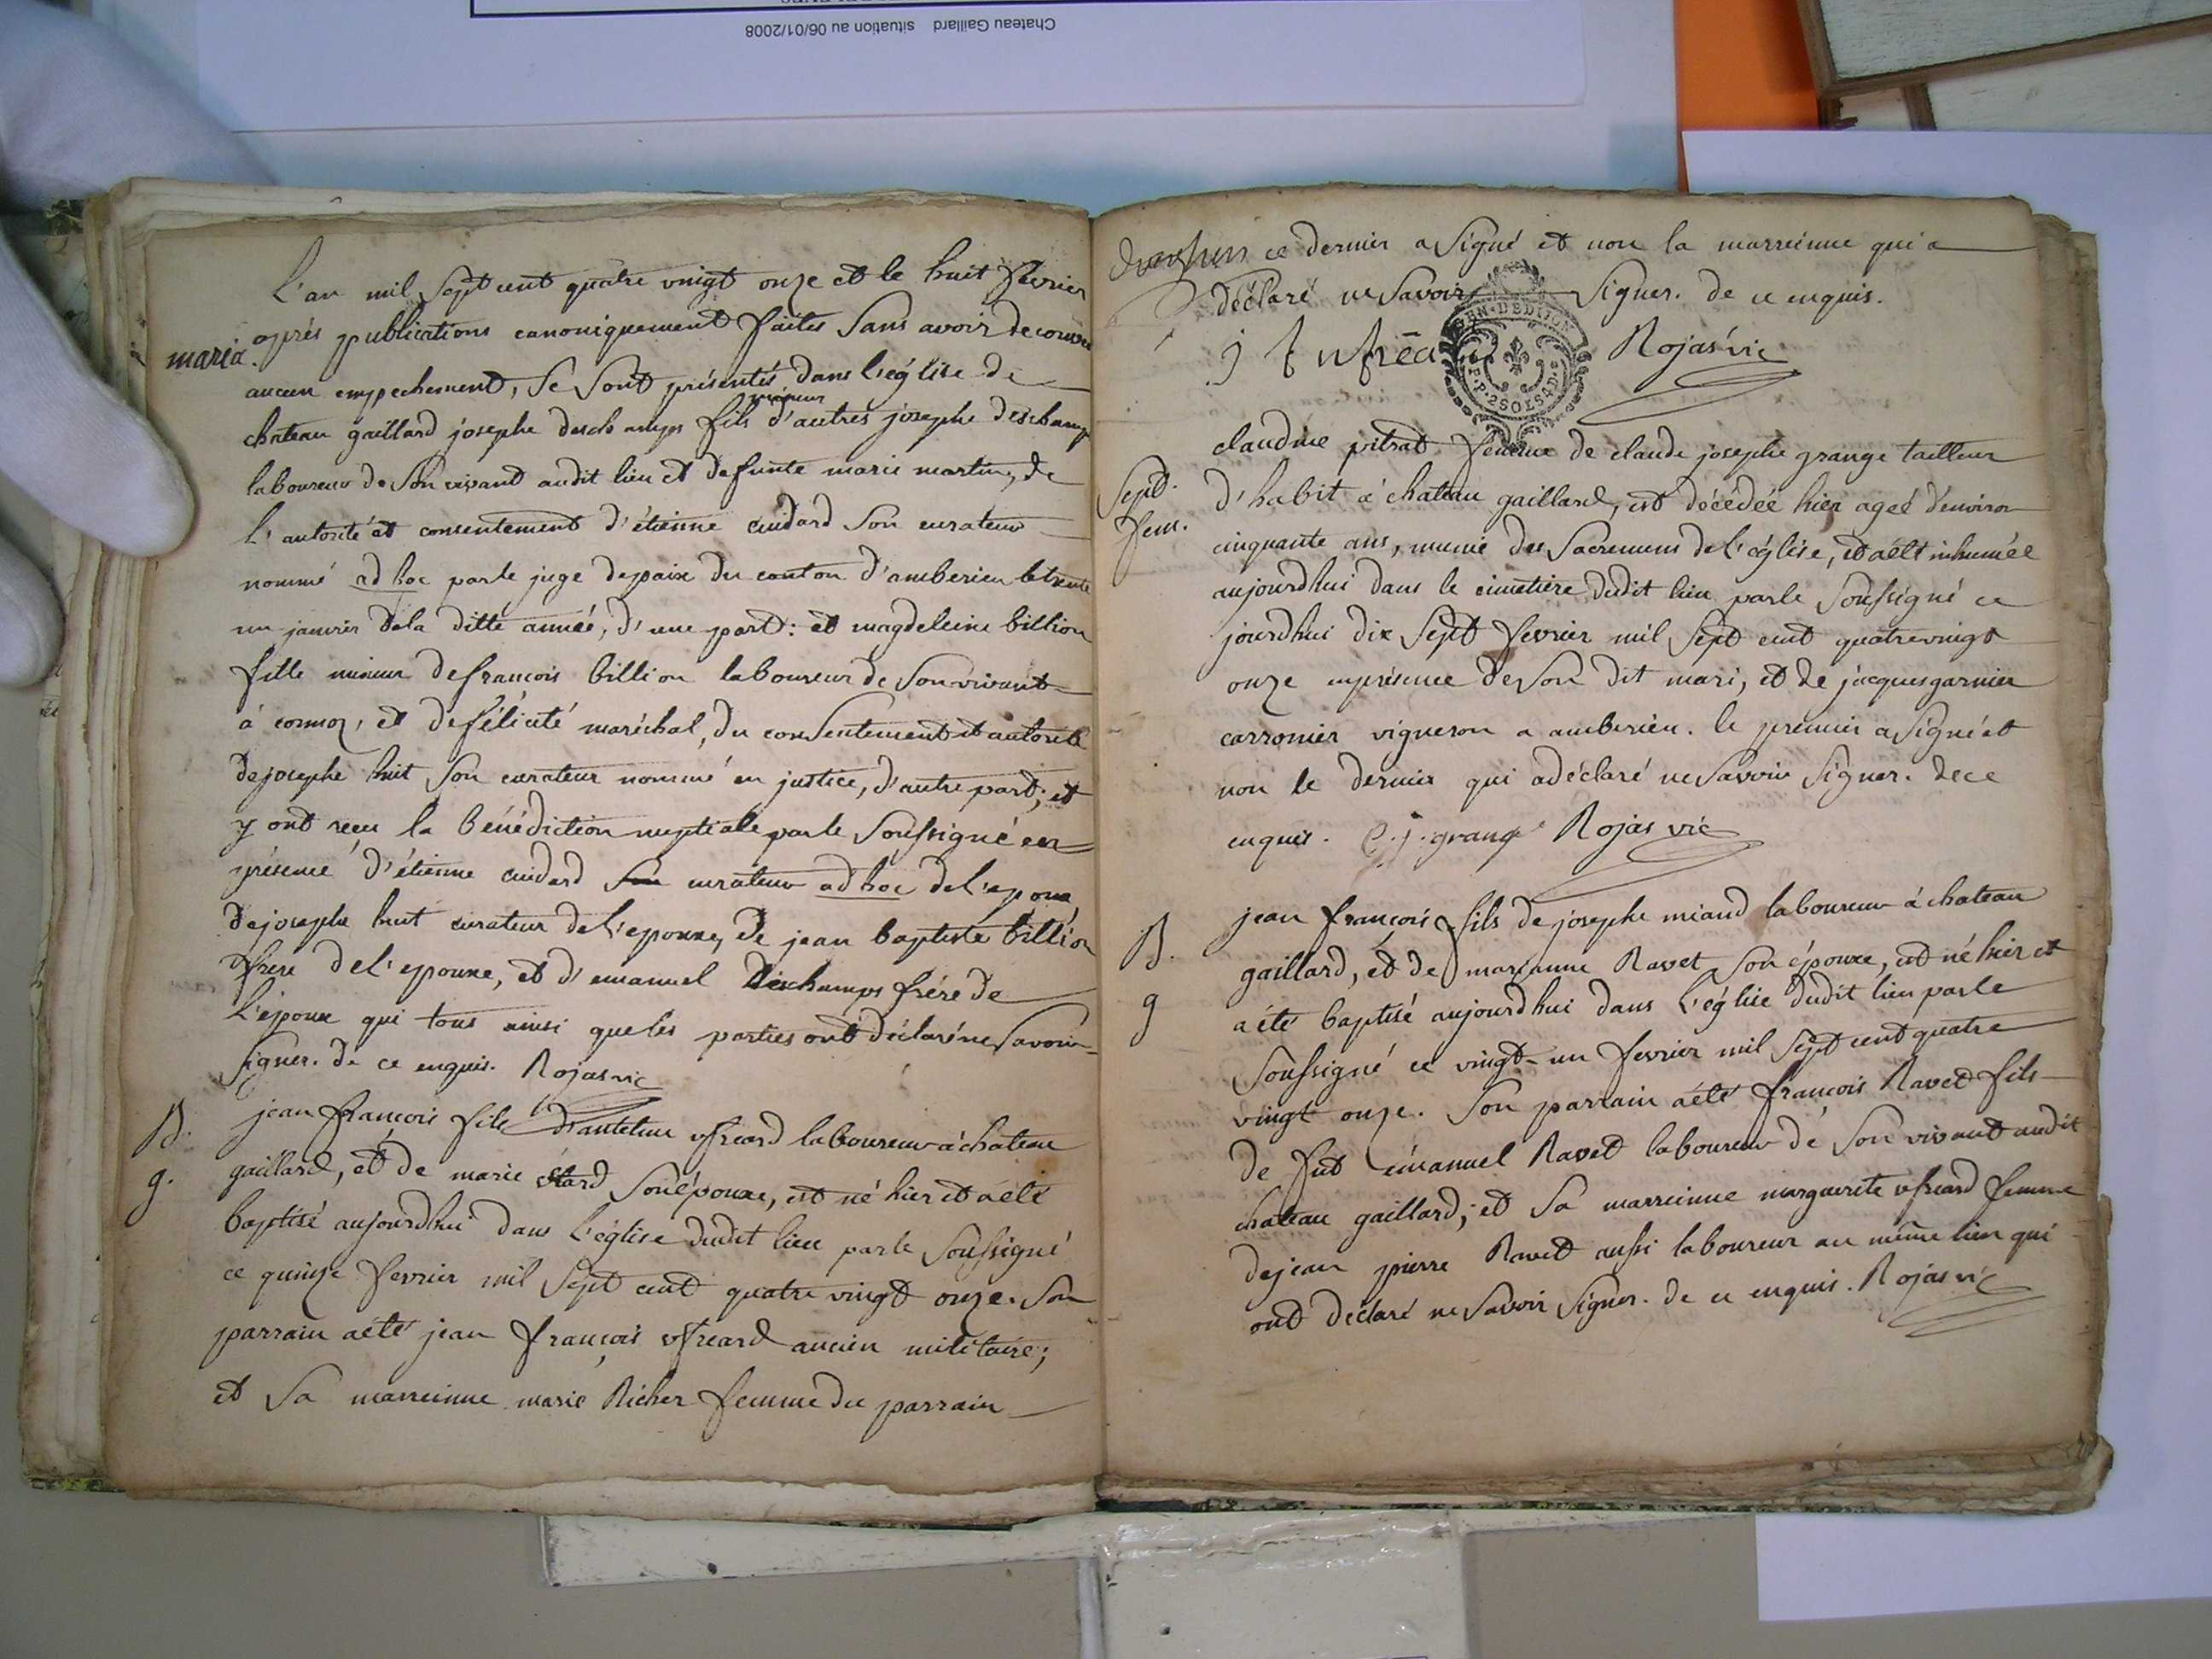 Chateau Gaillard situation au 06/01/2008
maria.
L'an mil Sept cent quatre vingt onze et le huit fevrier
après publications canoniquement faites Sans avoir decouvert
aucun empechement, Se Sont présentés dans l'église de
chateau gaillard josephe deschamps fils mineur d'autres josephe deschamp
laboureur de Son vivant audit lieu et defunte marie martin, de
l'autorité et consentement d'étienne cuidard Son curateur
nommé ad hoc par le juge de paix du canton d'amberieu le trente
un janvier de la ditte année, d'une part: et magdeleine billion
fille mineur de francois billion laboureur de Son vivant
à cormoz, et de félicité maréchal, du consentement et autorité
de josephe huit Son curateur nommé en justice, d'autre part; et
y ont reçu la bénédiction nuptiale par le Soussigné en
présence d'étienne cuidard curateur ad hoc de l'epoux
de josephe huit curateur de l'epouxe, de jean baptiste billion
frère de l'epouxe, et d'emanuel deschamps frére de
l'époux qui tous ainsi que les parties ont déclaré ne Savoir
Signer. de ce enquis. Rojas vic
B.
g.
jean francois fils d'antelme ufreard laboureur à chateau
gaillard, et de marie Son épouxe, est né hier et a été
baptisé aujourdhui dans l'église dudit lieu par le Soussigné
ce quinze fevrier mil Sept cent quatre vingt onze. Son
parrain a été jean françois ufreard ancien militaire;
et Sa marreinne marie Richer femme du parrain
ce dernier a Signé et non la marreinne qui a
déclaré ne Savoir Signer. de ce enquis.
GEN. DE DIJON
P.P. 2 SOLS 4 D.
j f ufrea Rojas vic
Sept.
fem.
claudine pitrat femme de claude josephe grange tailleur
d'habit à chateau gaillard, est décédée hier ageé d'environ
cinquante ans, munie des Sacremens de l'église, et a été inhumée
aujourdhui dans le cimetière dudit lieu par le Soussigné ce
jourdhui dix Sept fevrier mil Sept cent quatrevingt
onze en présence de Son dit mari, et de jacques garnier
carronier vigneron a amberieu. le premier a Signé et
non le dernier qui a déclaré ne Savoir Signer. de ce
enquis. C. j. grange Rojas vic
B.
g
jean francois fils de josephe miand laboureur à chateau
gaillard, et de marianne Ravet Son épouxe, est né hier et
a été baptisé aujourdhui dans l'église dudit lieu par le
Soussigné ce vingt-un fevrier mil Sept cent quatre
vingt onze. Son parrain a été francois Ravet fils
de fut émanuel Ravet laboureur de Son vivant audit
chateau gaillard; et Sa marreinne marguerite ufreard femme
de jean pierre Ravet aussi laboureur au même lieu qui
ont déclaré ne Savoir Signer. de ce enquis. Rojas vic